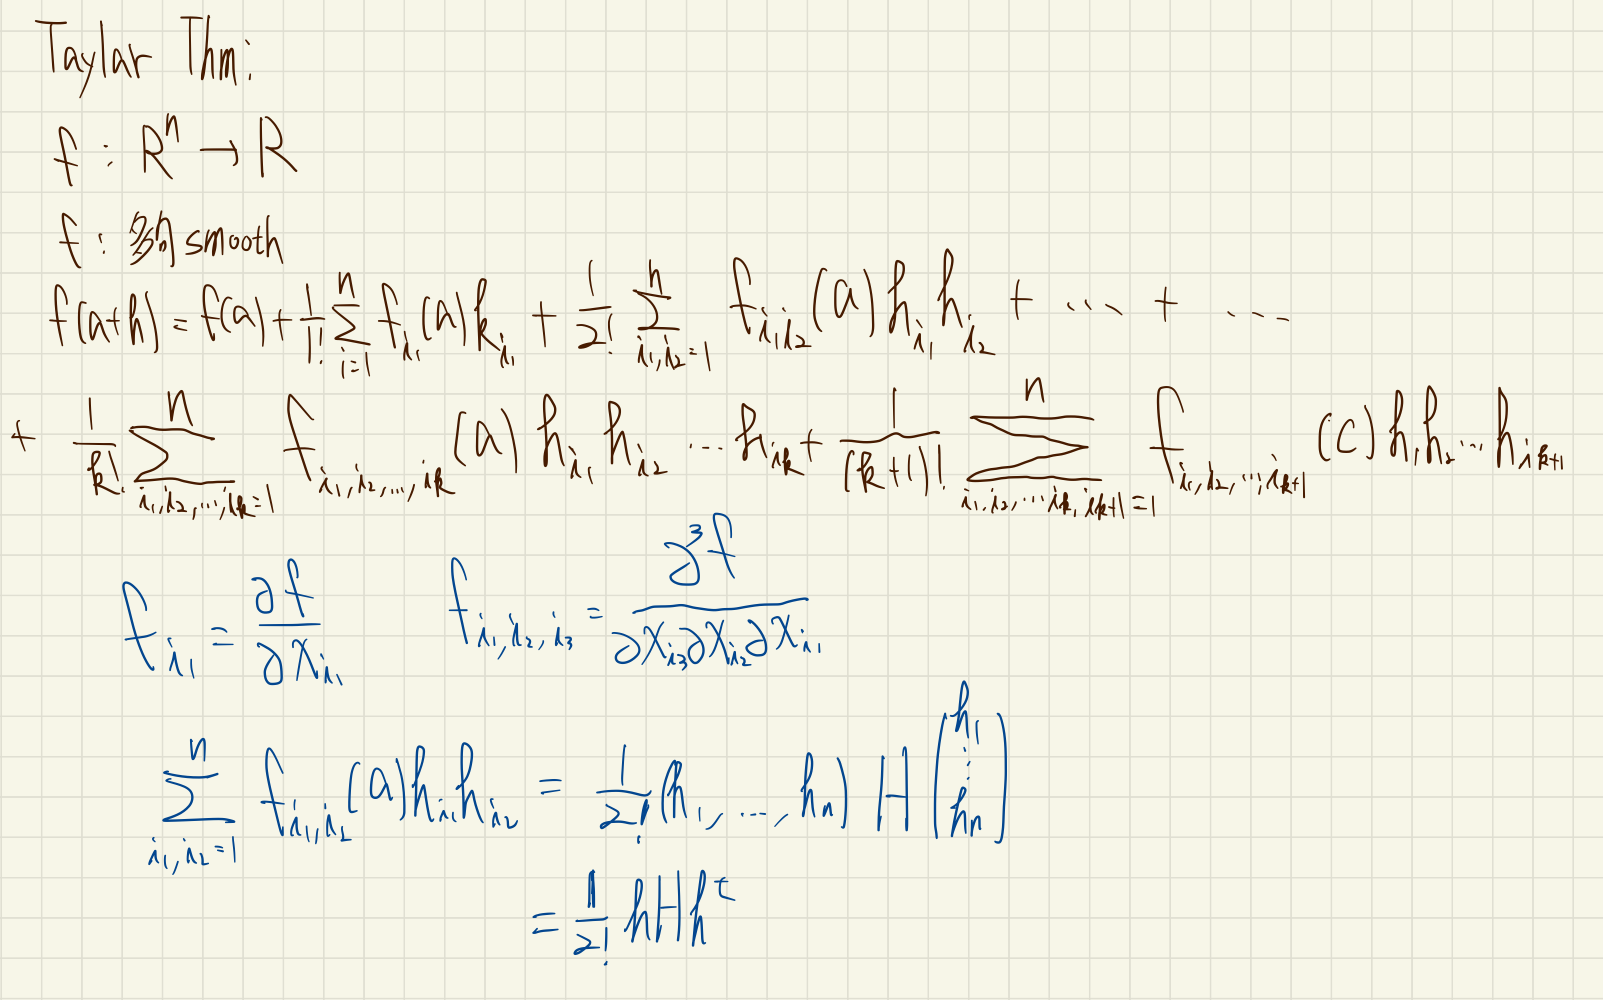 Taylar Thm:
f : R^n → R
f : 夠 smooth
f(a+h) = f(a) + \frac{1}{1!} \sum_{i=1}^{n} f_{i_1}(a) k_{i_1} + \frac{1}{2!} \sum_{i_1,i_2=1}^{n} f_{i_1 i_2}(a) h_{i_1} h_{i_2} + ... + ...
+ \frac{1}{k!} \sum_{i_1,i_2,...,ik=1}^{n} f_{i_1,i_2,...,ik}(a) h_{i_1} h_{i_2} ... h_{ik} + \frac{1}{(k+1)!} \sum_{i_1,i_2,...ik,ik+1=1}^{n} f_{i_1,i_2,...,i_{k+1}}(c) h_1 h_2 ... h_{ik+1}
f_{i_1} = \frac{∂f}{∂x_{i_1}} f_{i_1,i_2,i_3} = \frac{∂^3 f}{∂x_{i_3} ∂x_{i_2} ∂x_{i_1}}
\sum_{i_1,i_2=1}^{n} f_{i_1,i_2}(a) h_{i_1} h_{i_2} = \frac{1}{2!} (h_1, ..., h_n) H \begin{pmatrix} h_1 \\ \vdots \\ h_n \end{pmatrix}
= \frac{1}{2!} h H h^t